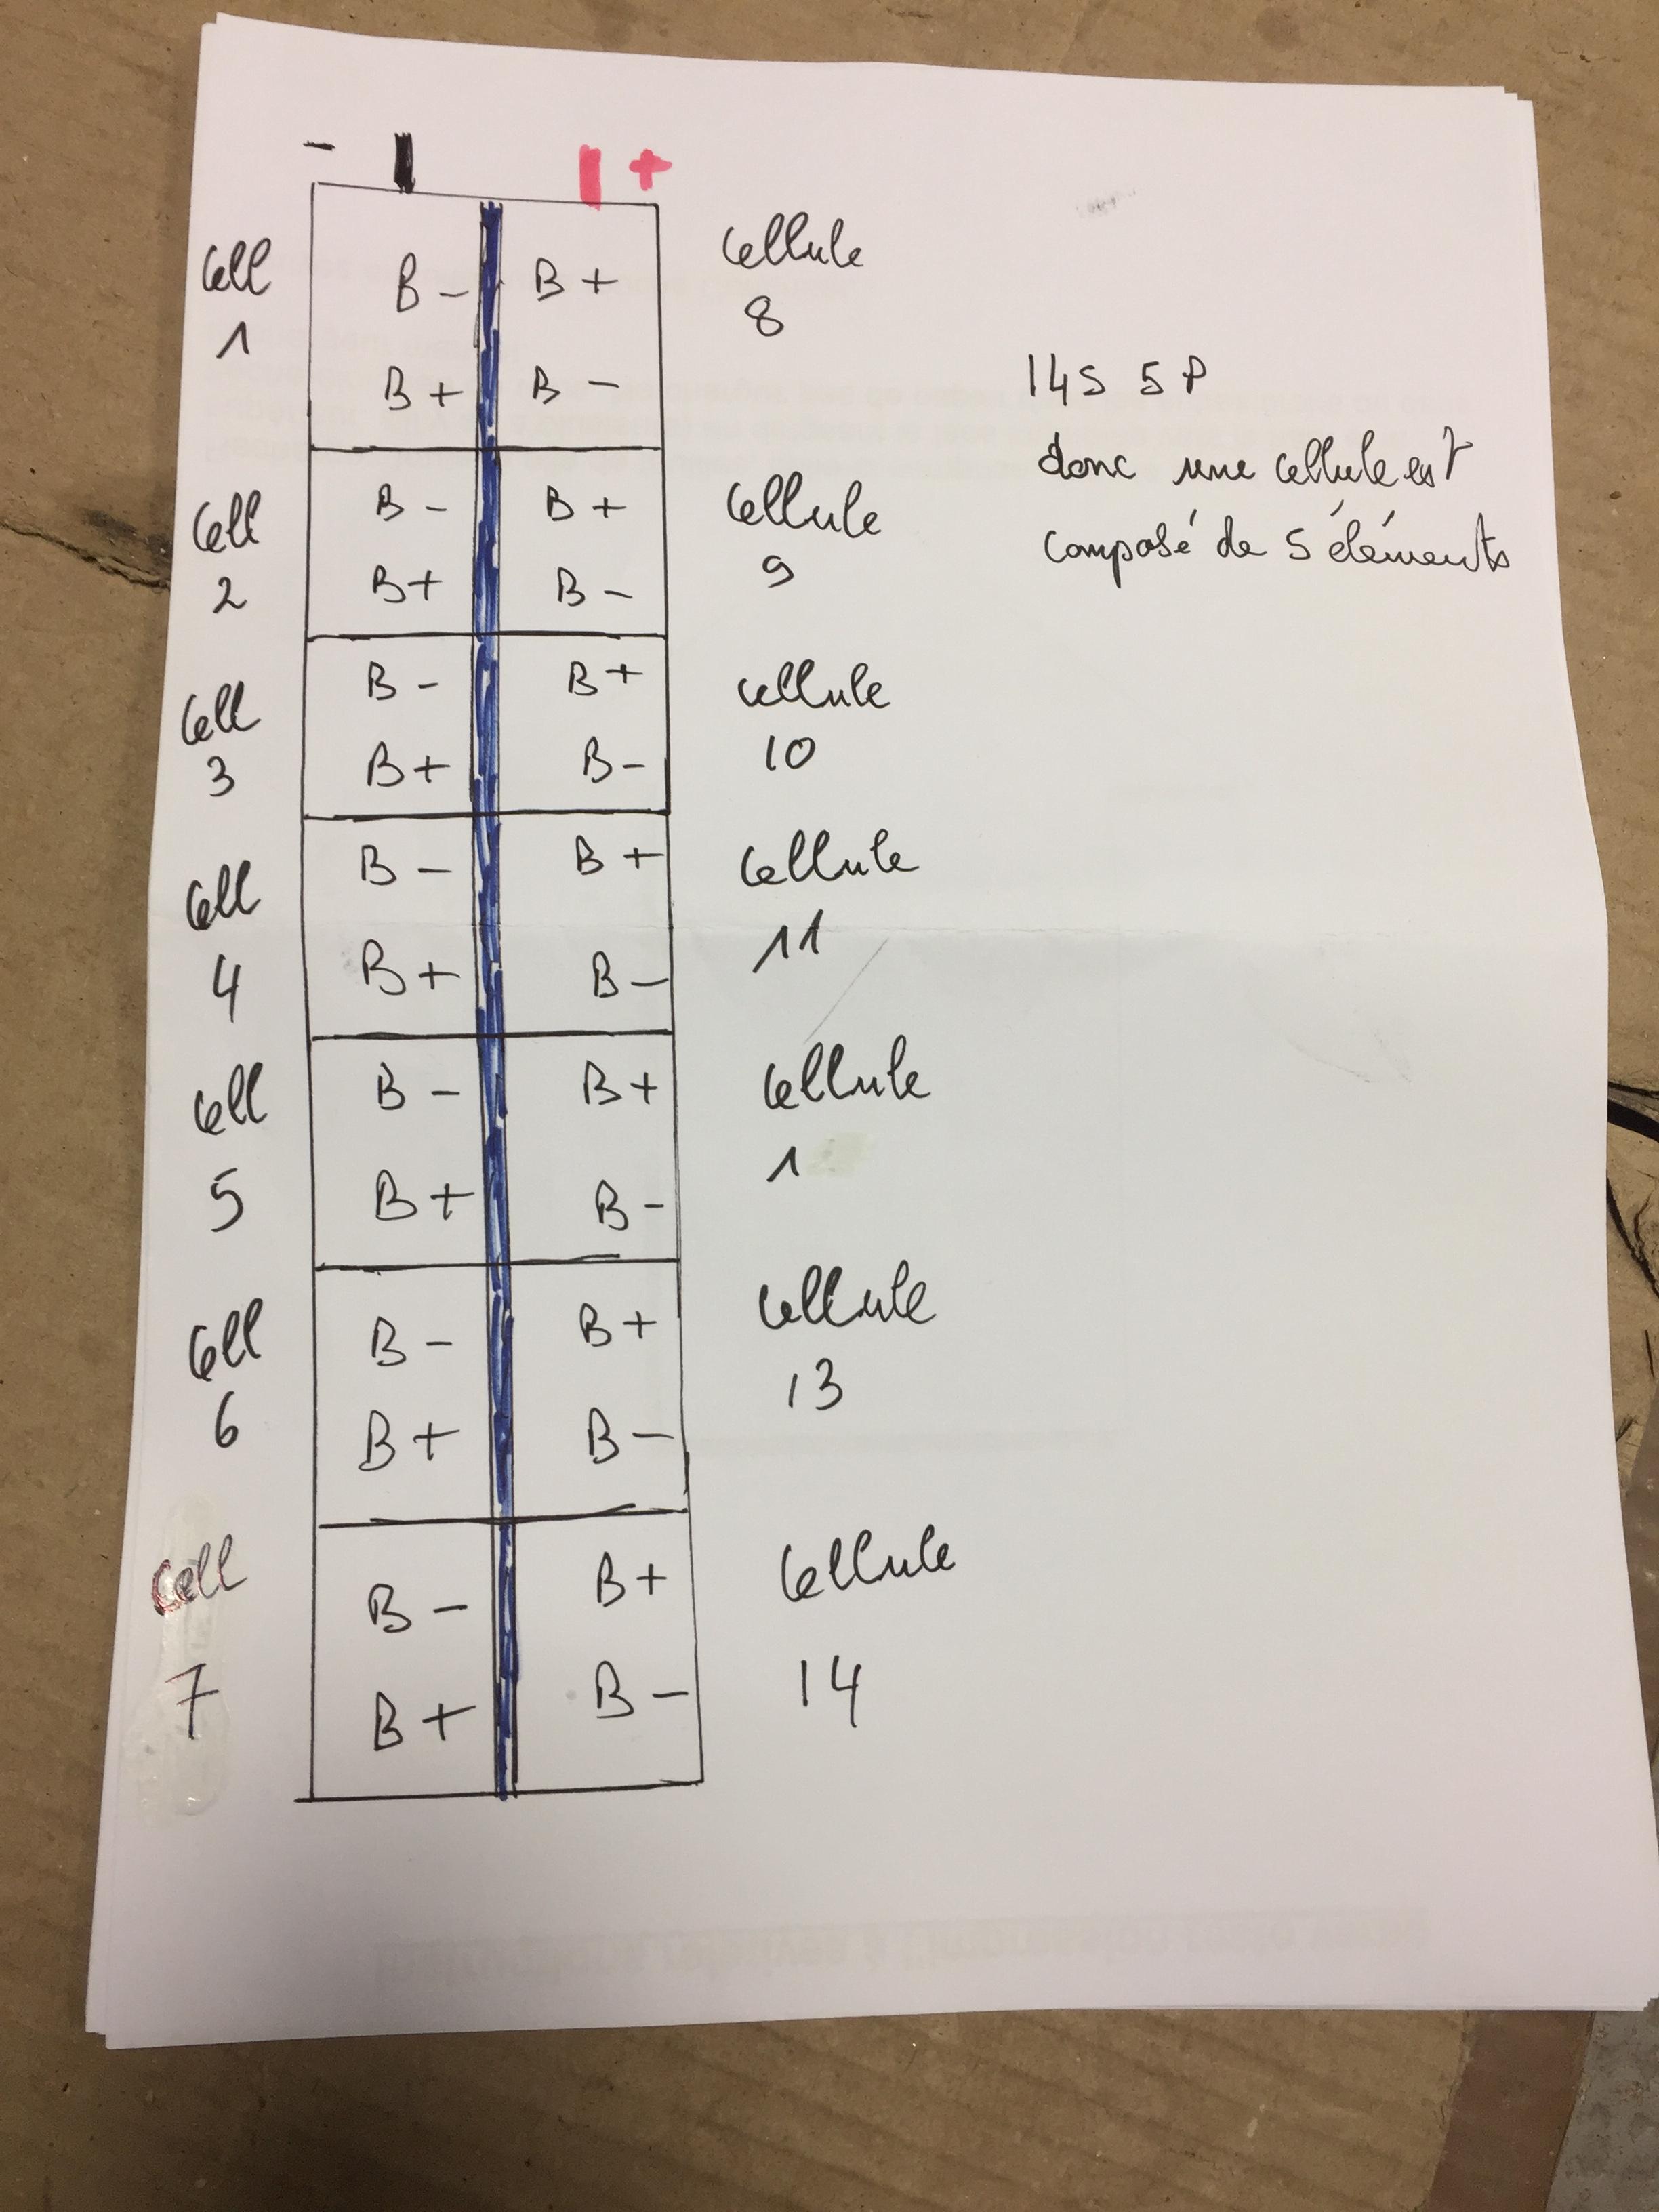 - +
Cell
1
B - B +
B + B -
Cellule
8
Cell
2
B - B +
B + B -
Cellule
9
Cell
3
B - B +
B + B -
Cellule
10
Cell
4
B - B +
B + B -
Cellule
11
Cell
5
B - B +
B + B -
Cellule
1
Cell
6
B - B +
B + B -
Cellule
13
Cell
7
B - B +
B + B -
Cellule
14
14S 5P
donc une cellule est
composé de 5 éléments